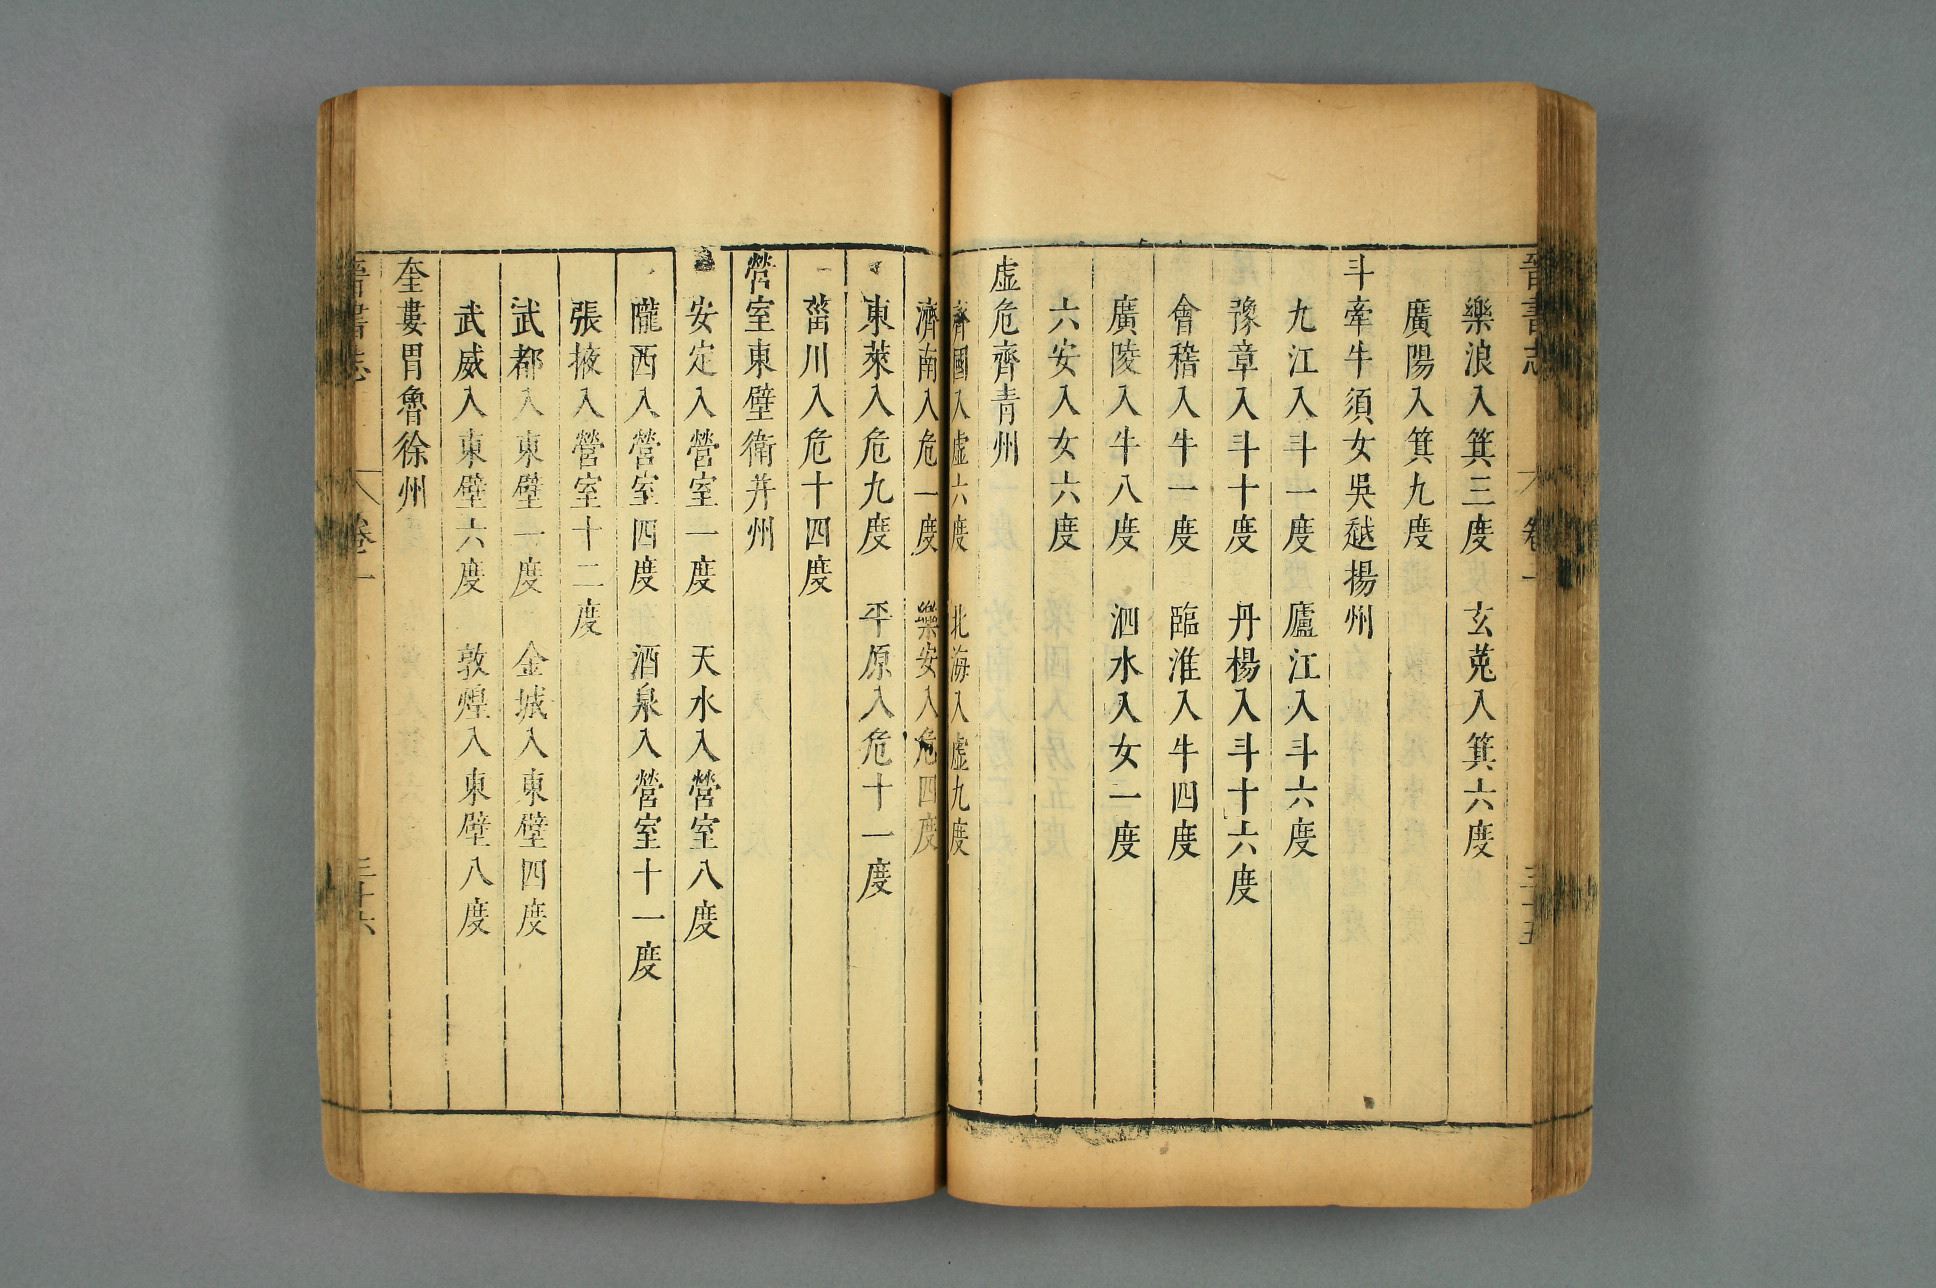 晉書志 卷一 三十五
樂浪入箕三度 玄菟入箕六度
廣陽入箕九度
斗牽牛須女吳越揚州
九江入斗一度 廬江入斗六度
豫章入斗十度 丹楊入斗十六度
會稽入牛一度 臨淮入牛四度
廣陵入牛八度 泗水入女一度
六安入女六度
虛危齊青州
齊國入虛六度 北海入虛九度
濟南入危一度 樂安入危四度
東萊入危九度 平原入危十一度
菑川入危十四度
營室東壁衛并州
安定入營室一度 天水入營室八度
隴西入營室四度 酒泉入營室十一度
張掖入營室十二度
武都入東壁一度 金城入東壁四度
武威入東壁六度 敦煌入東壁八度
奎婁胃魯徐州
晉書志 卷一 三十六